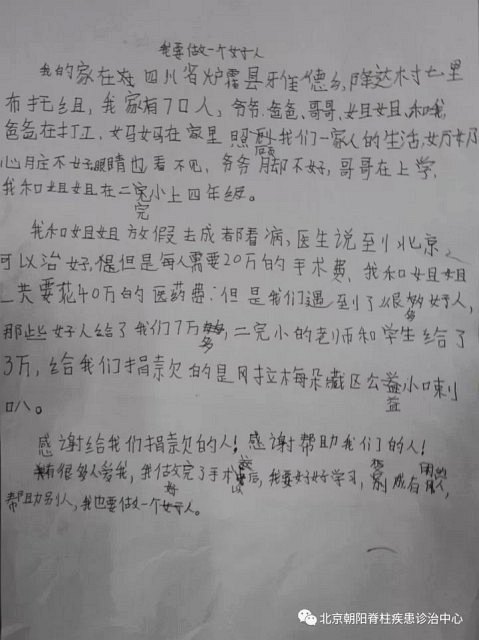 我要做一个好人
我的家在四川省炉霍县雅德乡,降达村七里
布托组,我家有7口人,爷爷、爸爸、哥哥、姐姐、和我,
爸爸在打工,妈妈在家里照顾我们一家人的生活,奶奶
心脏不好,眼睛也看不见,爷爷脚不好,哥哥在上学,
我和姐姐在二完小上四年级。
我和姐姐放假去成都看病,医生说到北京
可以治好,但是每人需要20万的手术费,我和姐姐
一共要花40万的医药费,但是我们遇到了很多好人,
那些好人给了我们7万多,二完小的老师和学生给了
3万,给我们捐款的是冈拉梅朵藏区公益小喇
叭。
感谢给我们捐款的人!感谢帮助我们的人!
有很多人爱我,我做完了手术以后,我要好好学习,成有用的人,
帮助别人,我也要做一个好人。
北京朝阳脊柱疾患诊治中心